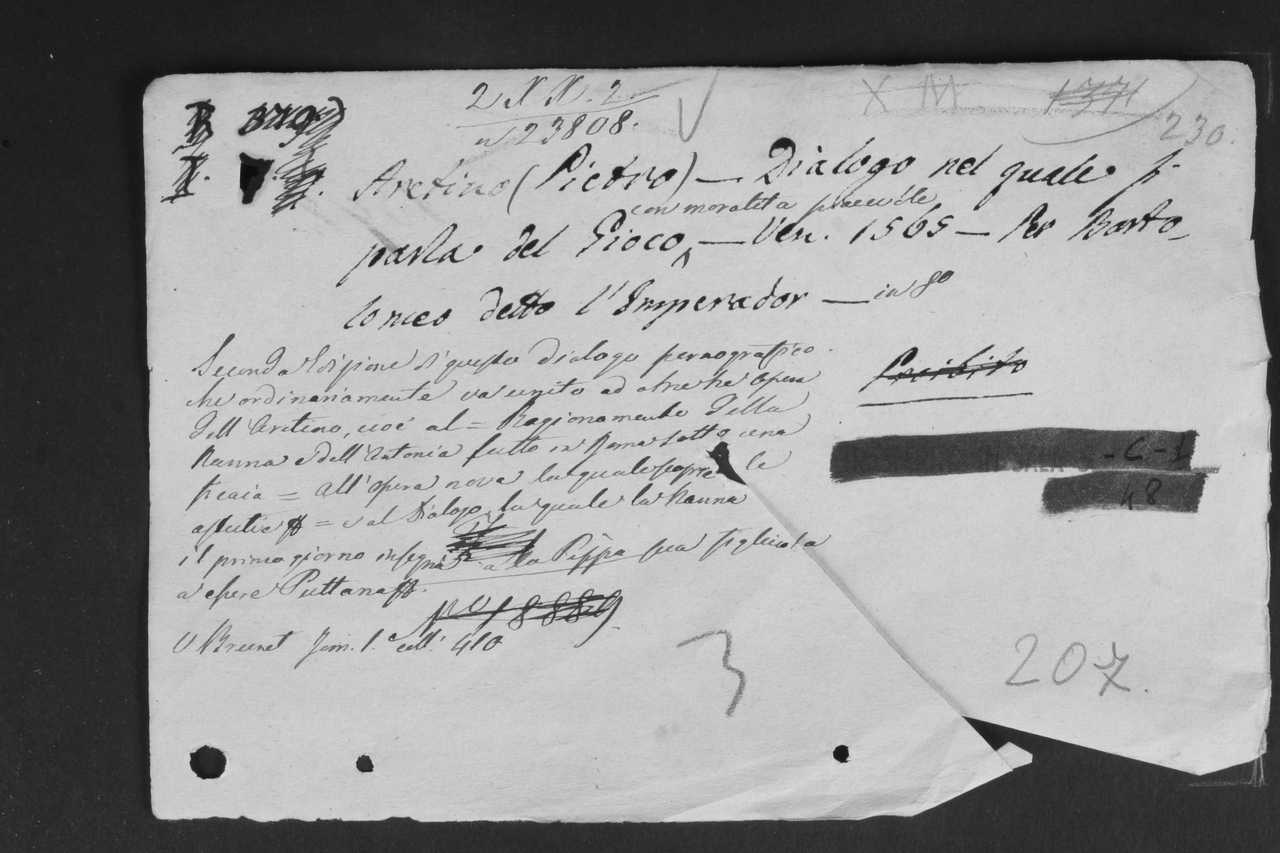 2 X X. 2
n 23808.
X M 1371
230.
Aretino (Pietro) — Dialogo nel quale si
con moralità piacevole
parla del Gioco, — Ven. 1565 — Per Barto_
lomeo detto l'Imperador — in 8°
Seconda Edizione di questo dialogo pornografico.
che ordinariamente va unito ad altre tre Opere
dell'Aretino, cioè al = Ragionamento della
Nanna e dell'Antonia fatto in Roma sotto una
ficaia = all'Opera nova la quale scopre le
astutie = e al Dialogo, la quale la Nanna
il primo giorno insegna alla Pippa sua figliuola
a essere Puttana.
V Brunet Tom. 1.° coll.° 410
Proibito
- C - 1
48
3
207.